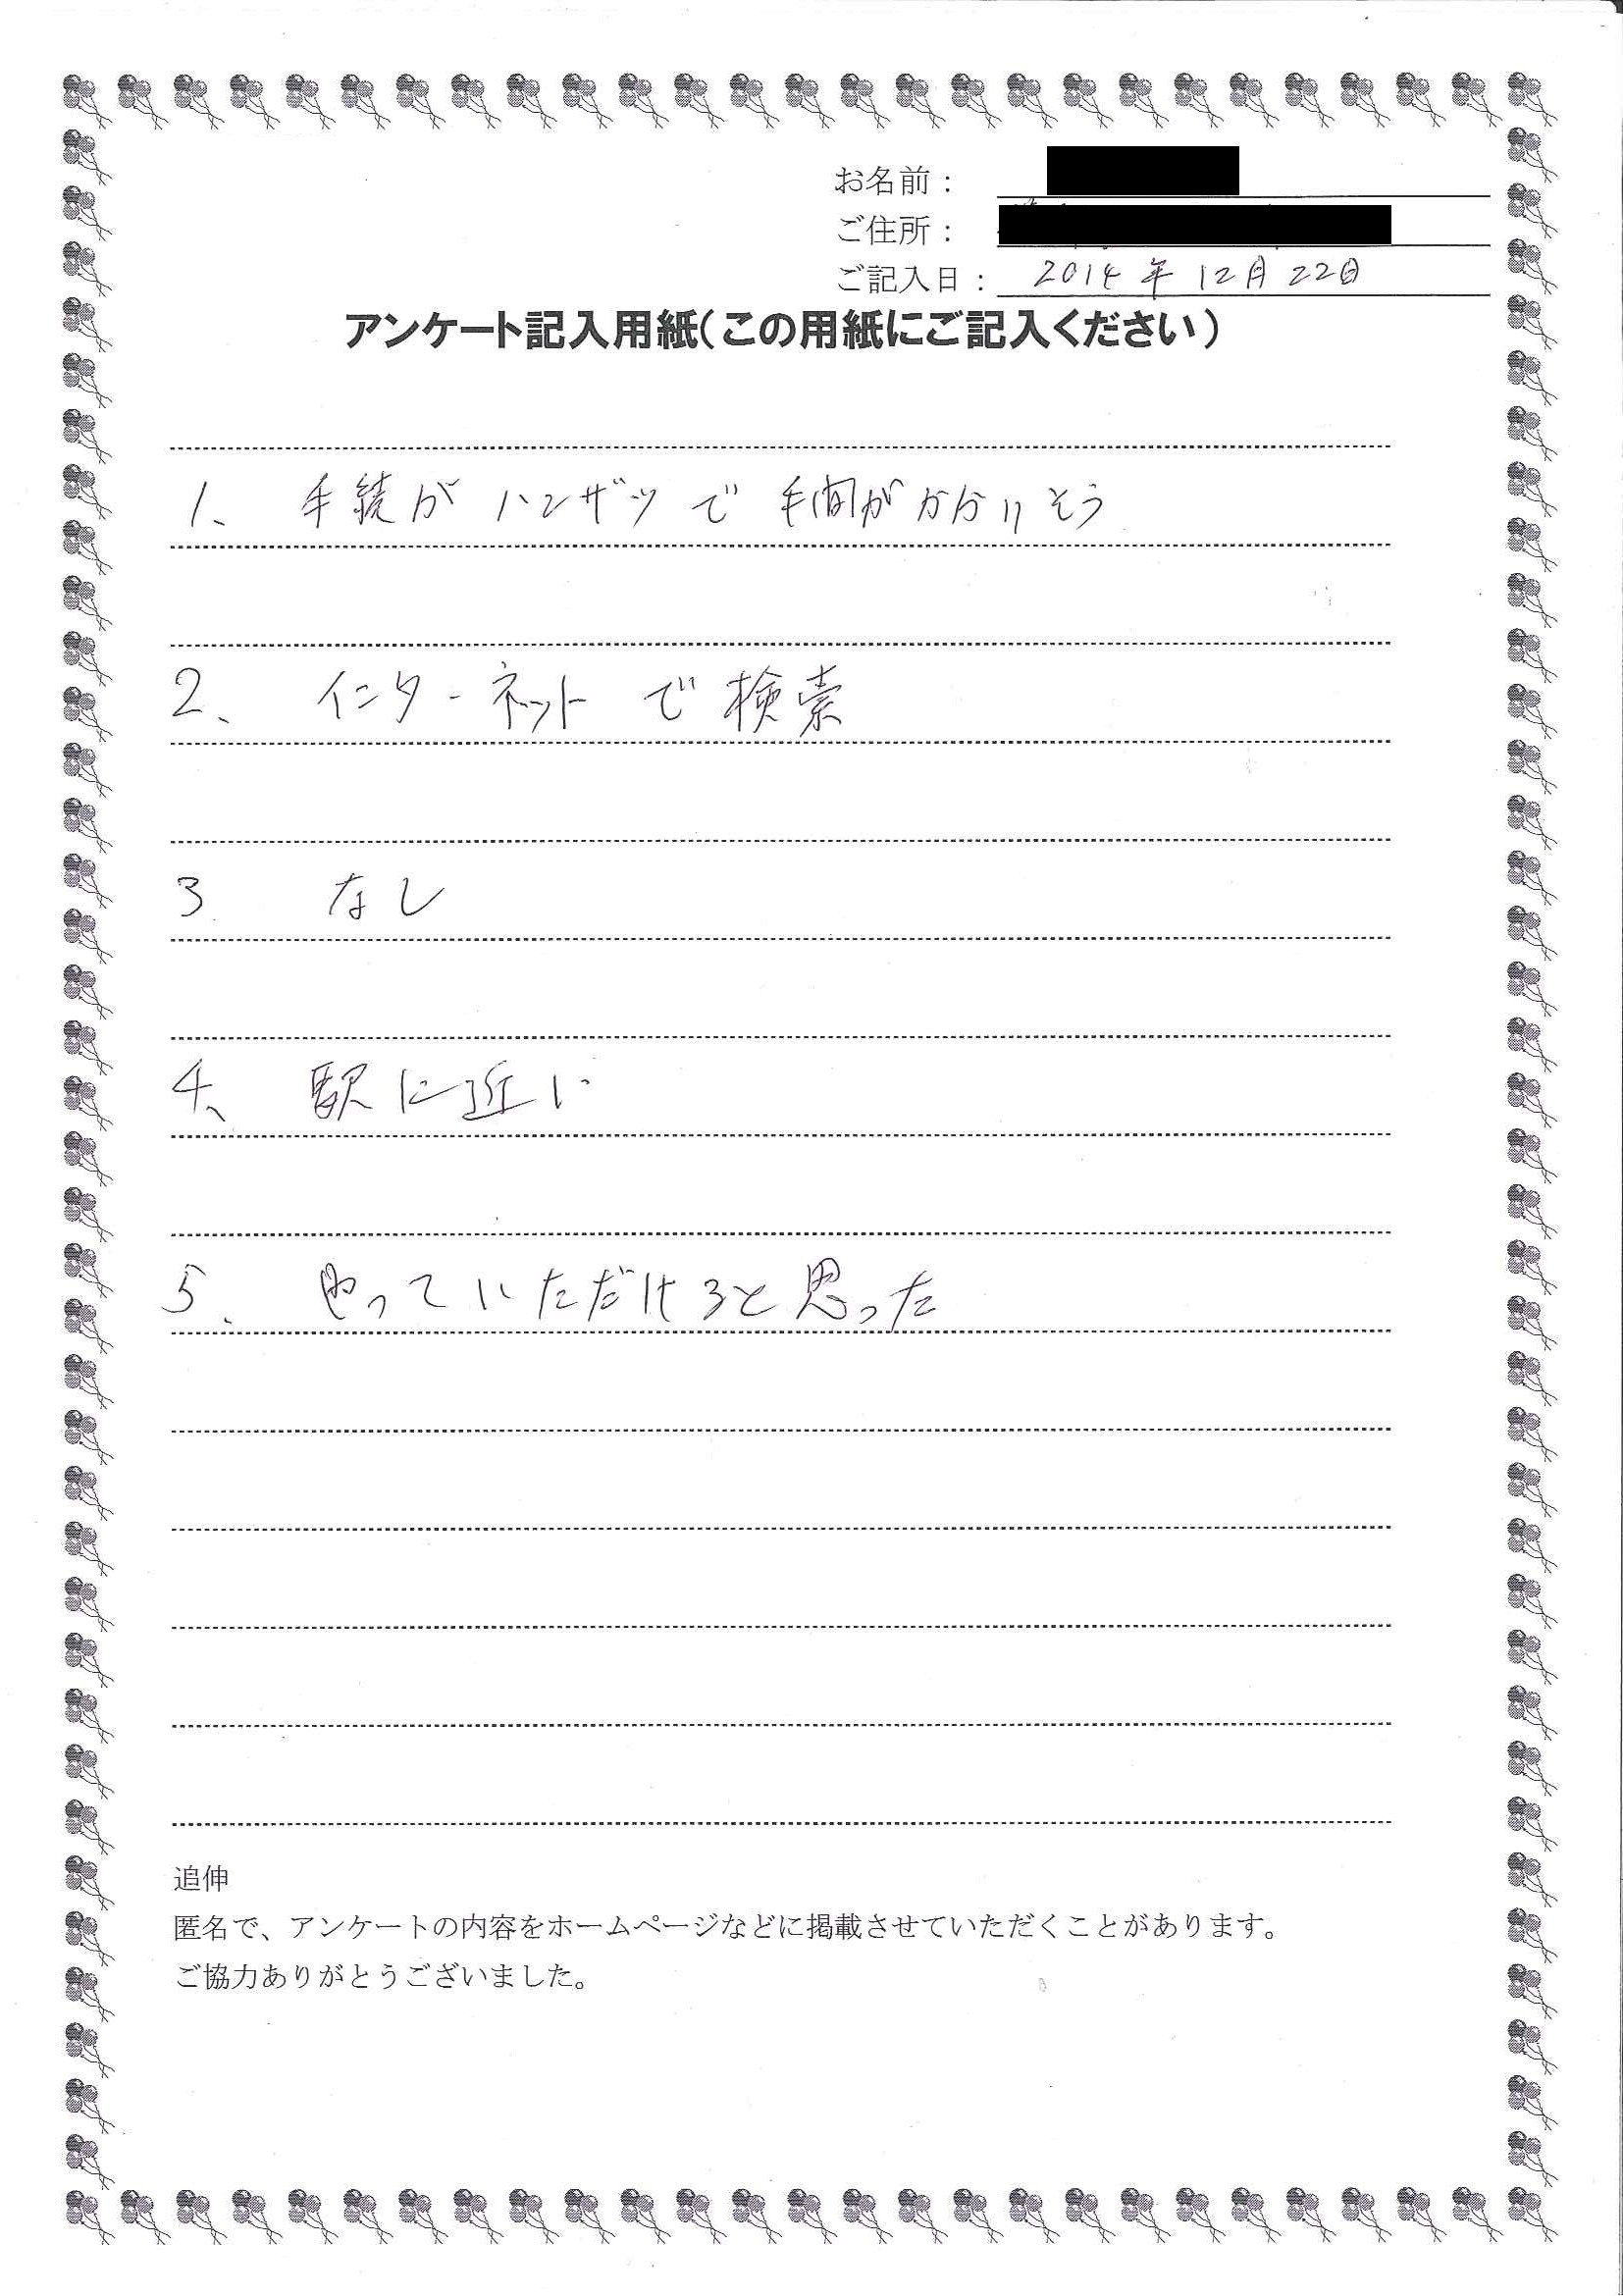 お名前：
ご住所：
ご記入日： 2014年12月22日
アンケート記入用紙（この用紙にご記入ください）
1、 手続がハンザツで手間がかかりそう
2、 インターネットで検索
3 なし
4、 駅に近い
5、 やっていただけると思った
追伸
匿名で、アンケートの内容をホームページなどに掲載させていただくことがあります。
ご協力ありがとうございました。